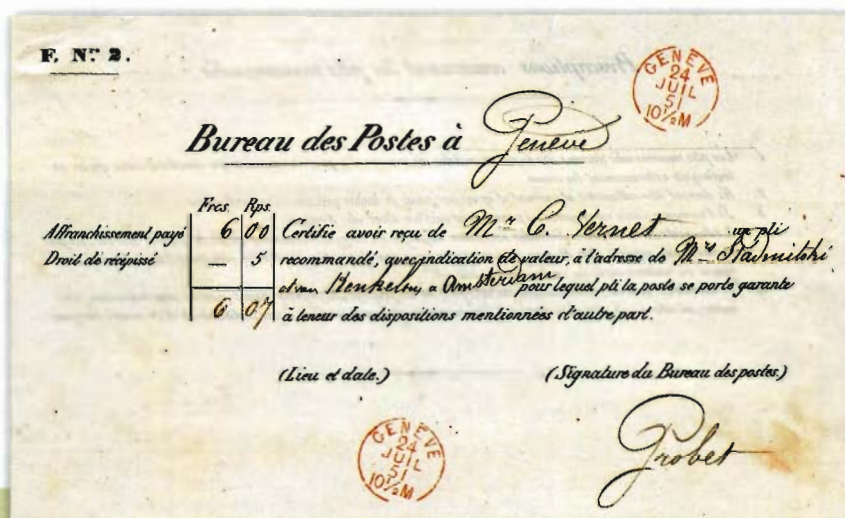 F. Nro 2.
GENÈVE
24
JUIL
51
10½M
Bureau des Postes à Genève
Frcs. Rps.
Affranchissement payé 6 00 Certifie avoir reçu de Mr C. Vernet un pli
Droit de récépissé — 5 recommandé, avec indication de valeur, à l'adresse de Mrs
et van Henkelom, a Amsterdam pour lequel pli la poste se porte garante
6 07 à teneur des dispositions mentionnées d'autre part.
(Lieu et date.) (Signature du Bureau des postes.)
GENÈVE
24
JUIL
51
10½M
Grobet